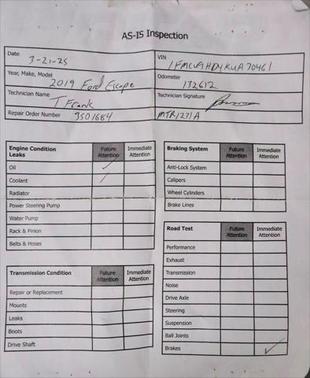 AS-IS Inspection
Date
3-21-25
VIN
Year, Make, Model
2019 Ford Escape
Odometer
132612
Technician Name
T Frank
Technician Signature
Repair Order Number
9501684
MTR1271A
Engine Condition Leaks Future Attention Immediate Attention
Oil
Coolant
Radiator
Power Steering Pump
Water Pump
Rack & Pinion
Belts & Hoses
Transmission Condition Future Attention Immediate Attention
Repair or Replacement
Mounts
Leaks
Boots
Drive Shaft
Braking System Future Attention Immediate Attention
Anti-Lock System
Calipers
Wheel Cylinders
Brake Lines
Road Test Future Attention Immediate Attention
Performance
Exhaust
Transmission
Noise
Drive Axle
Steering
Suspension
Ball Joints
Brakes